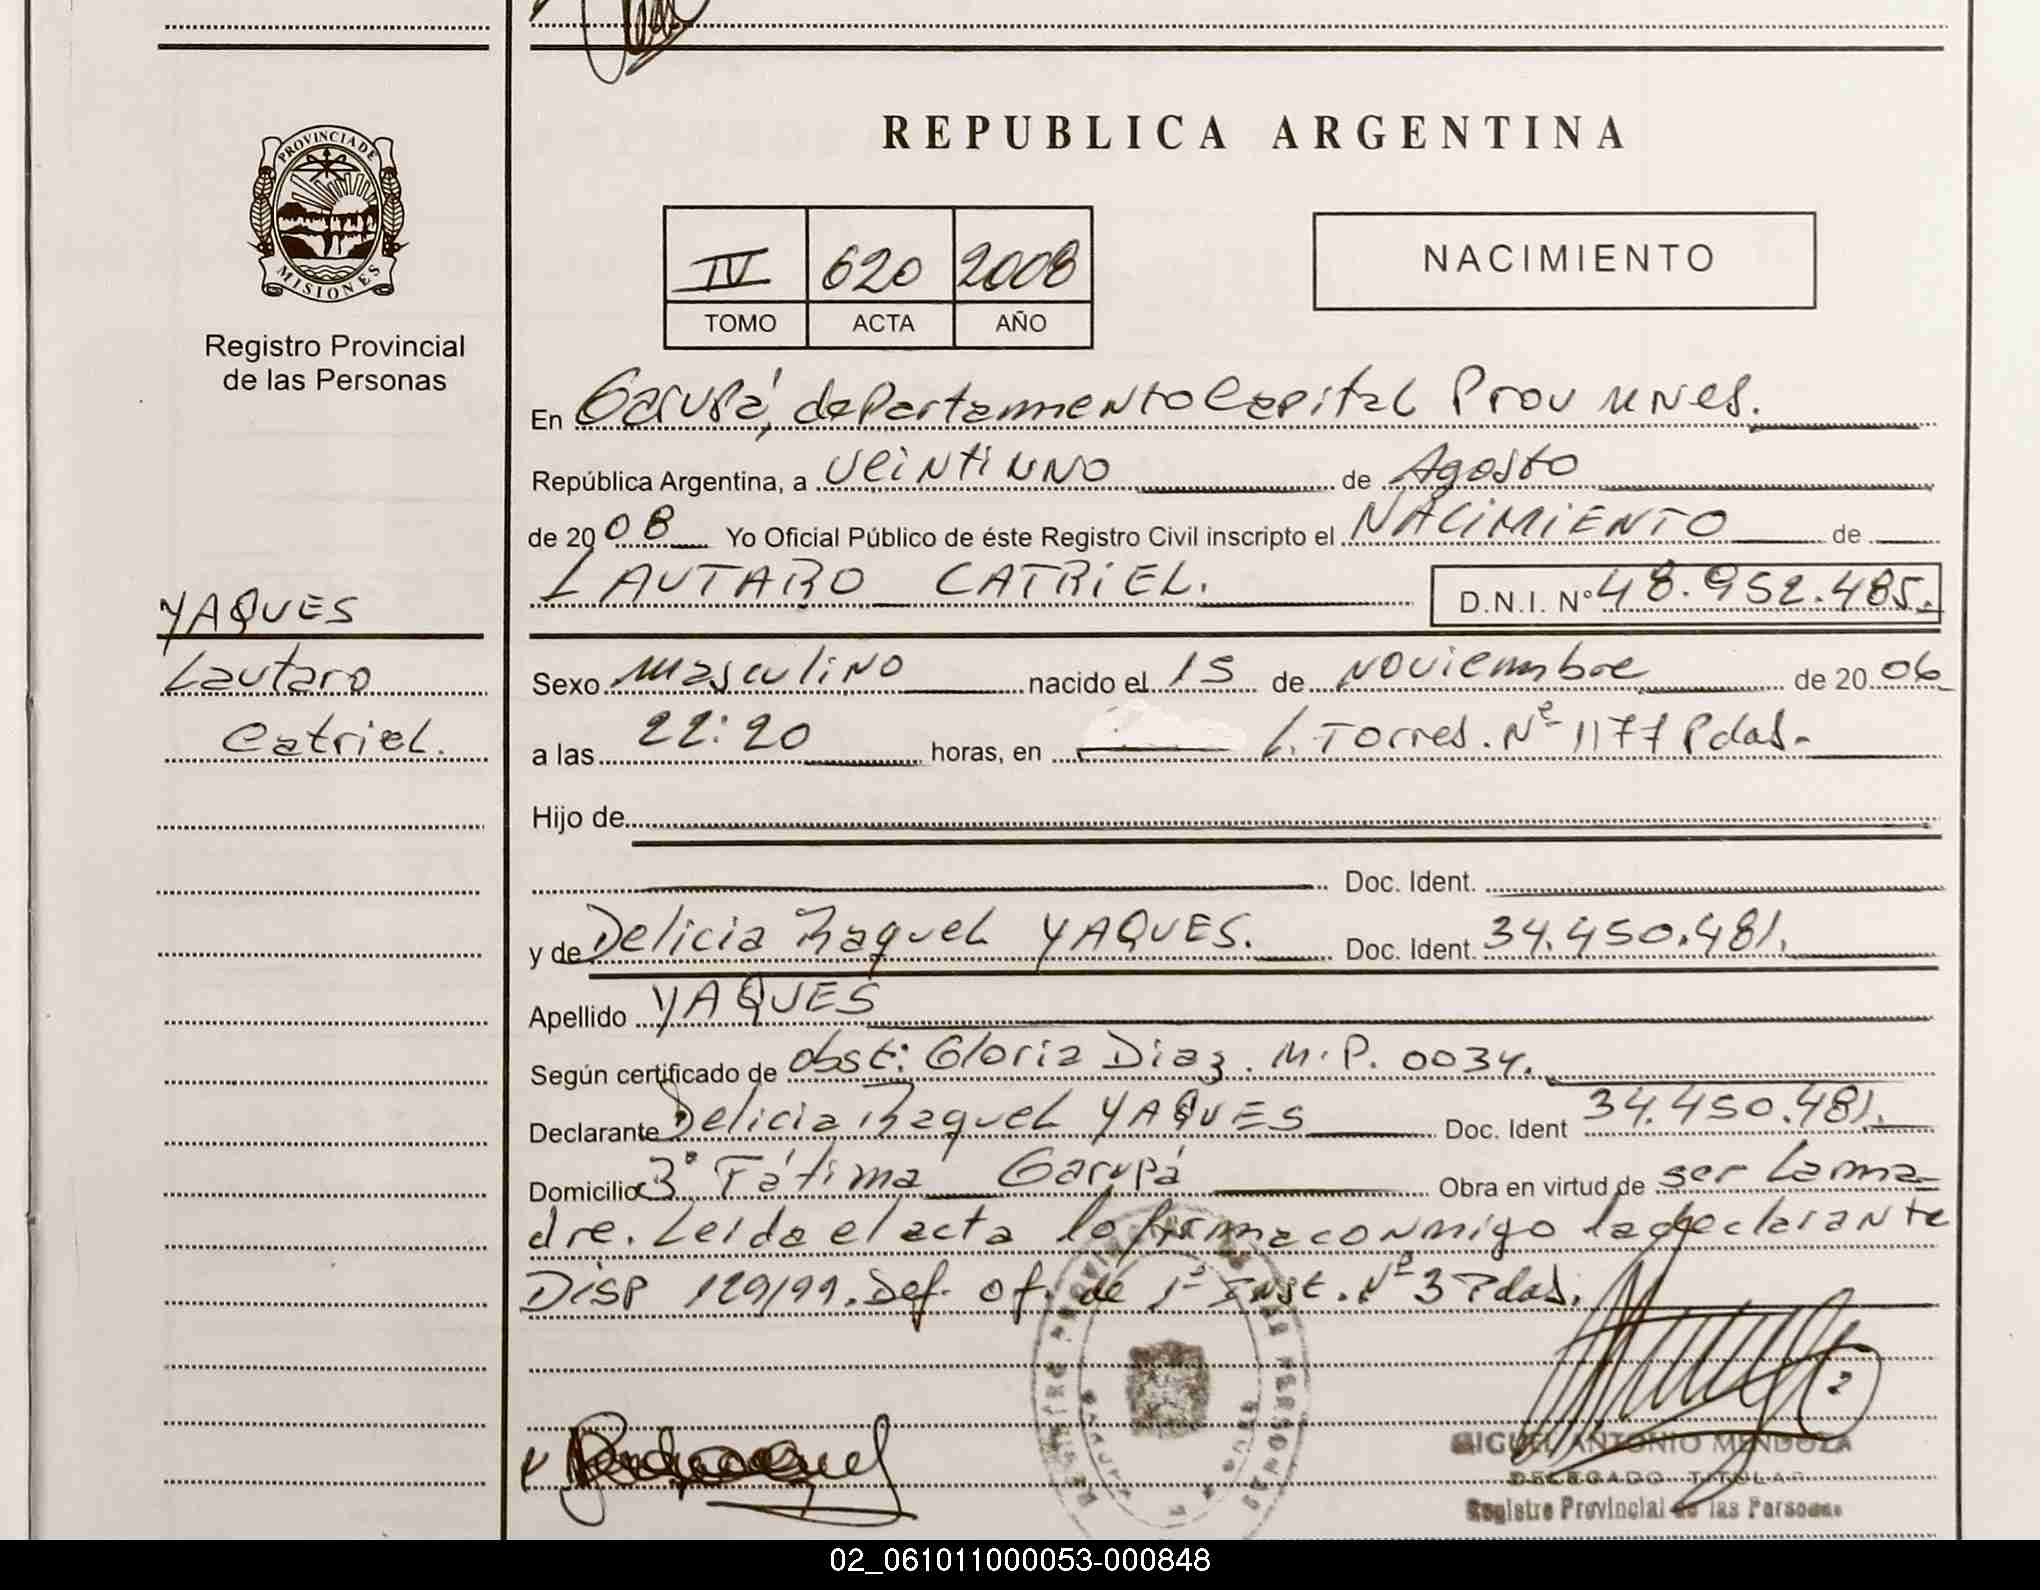 REPUBLICA ARGENTINA
PROVINCIA DE
MISIONES
Registro Provincial
de las Personas
IV 620 2008
TOMO ACTA AÑO
NACIMIENTO
En Garupá, departamento Capital Prov Mnes.
República Argentina, a veintiuno de Agosto
de 2008 Yo Oficial Público de éste Registro Civil inscripto el NACIMIENTO de
LAUTARO CATRIEL. D.N.I. Nº 48.952.485.
YAQUES
Lautaro
Catriel.
Sexo masculino nacido el 15 de noviembre de 2006
a las 22:20 horas, en L. Torres. Nº 1177 Pdas.
Hijo de
Doc. Ident.
y de Delicia Raquel YAQUES. Doc. Ident. 34.450.481.
Apellido YAQUES
Según certificado de obst: Gloria Diaz. M.P. 0034.
Declarante Delicia Raquel YAQUES Doc. Ident 34.450.481.
Domicilio 3º Fátima Garupá Obra en virtud de ser la ma-
dre. Leida el acta la firma conmigo la declarante
Disp 129/99. Def. of. de 1ª Inst. Nº 3 Pdas.
MIGUEL ANTONIO MENDOZA
DELEGADO TITULAR
Registro Provincial de las Personas
02_061011000053-000848